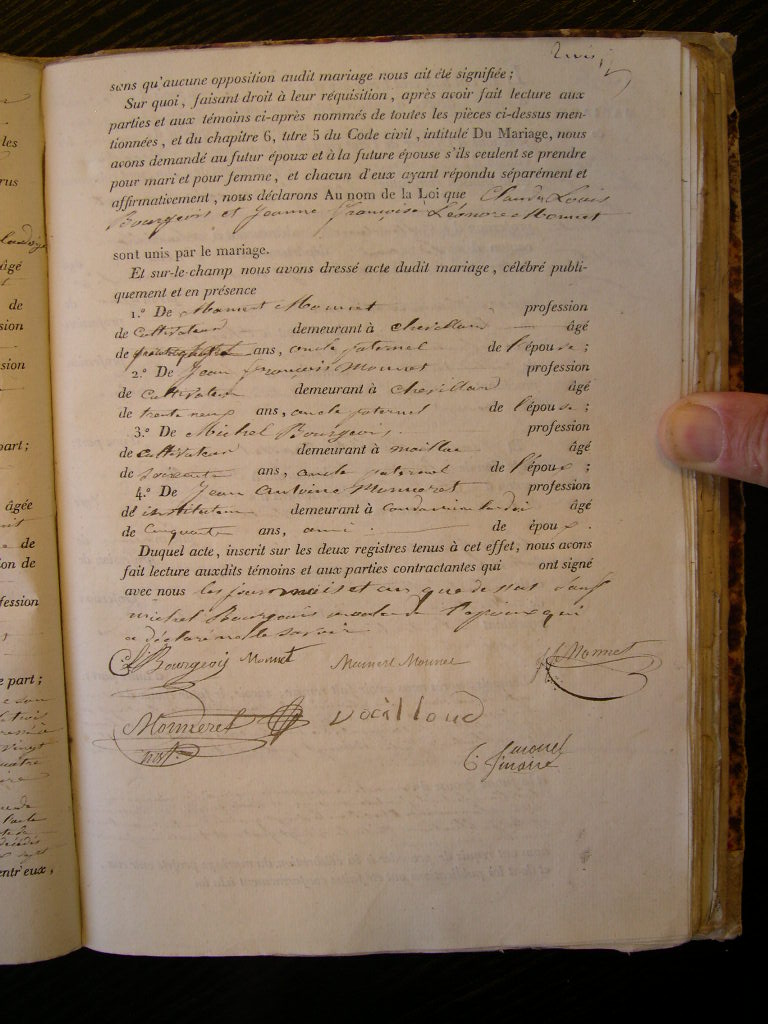 sans qu'aucune opposition audit mariage nous ait été signifiée ;
Sur quoi, faisant droit à leur réquisition, après avoir fait lecture aux
parties et aux témoins ci-après nommés de toutes les pièces ci-dessus men-
tionnées, et du chapitre 6, titre 5 du Code civil, intitulé Du Mariage, nous
avons demandé au futur époux et à la future épouse s'ils veulent se prendre
pour mari et pour femme, et chacun d'eux ayant répondu séparément et
affirmativement, nous déclarons Au nom de la Loi que Claude Louis
Bourgeois et Jeanne françoise Léonore Monnet
sont unis par le mariage.
Et sur-le-champ nous avons dressé acte dudit mariage, célébré publi-
quement et en présence
1.º De Mamert Monnet profession
de Cultivateur demeurant à âgé
de ans, oncle paternel de l'épouse ;
2.º De Jean françois Monnet profession
de Cultivateur demeurant à âgé
de trente neuf ans, oncle paternel de l'épouse ;
3.º De Michel Bourgeois profession
de Cultivateur demeurant à âgé
de soixante ans, oncle paternel de l'époux ;
4.º De Jean Antoine Monneret profession
de instituteur demeurant à âgé
de Cinquante ans, ami de époux.
Duquel acte, inscrit sur les deux registres tenus à cet effet, nous avons
fait lecture auxdits témoins et aux parties contractantes qui ont signé
avec nous les jour mois et an que dessus sauf
michel Bourgeois oncle de l'époux qui
a déclaré ne le savoir
C L Bourgeois Monnet Mamert Monnet Monnet
Monneret vailloud